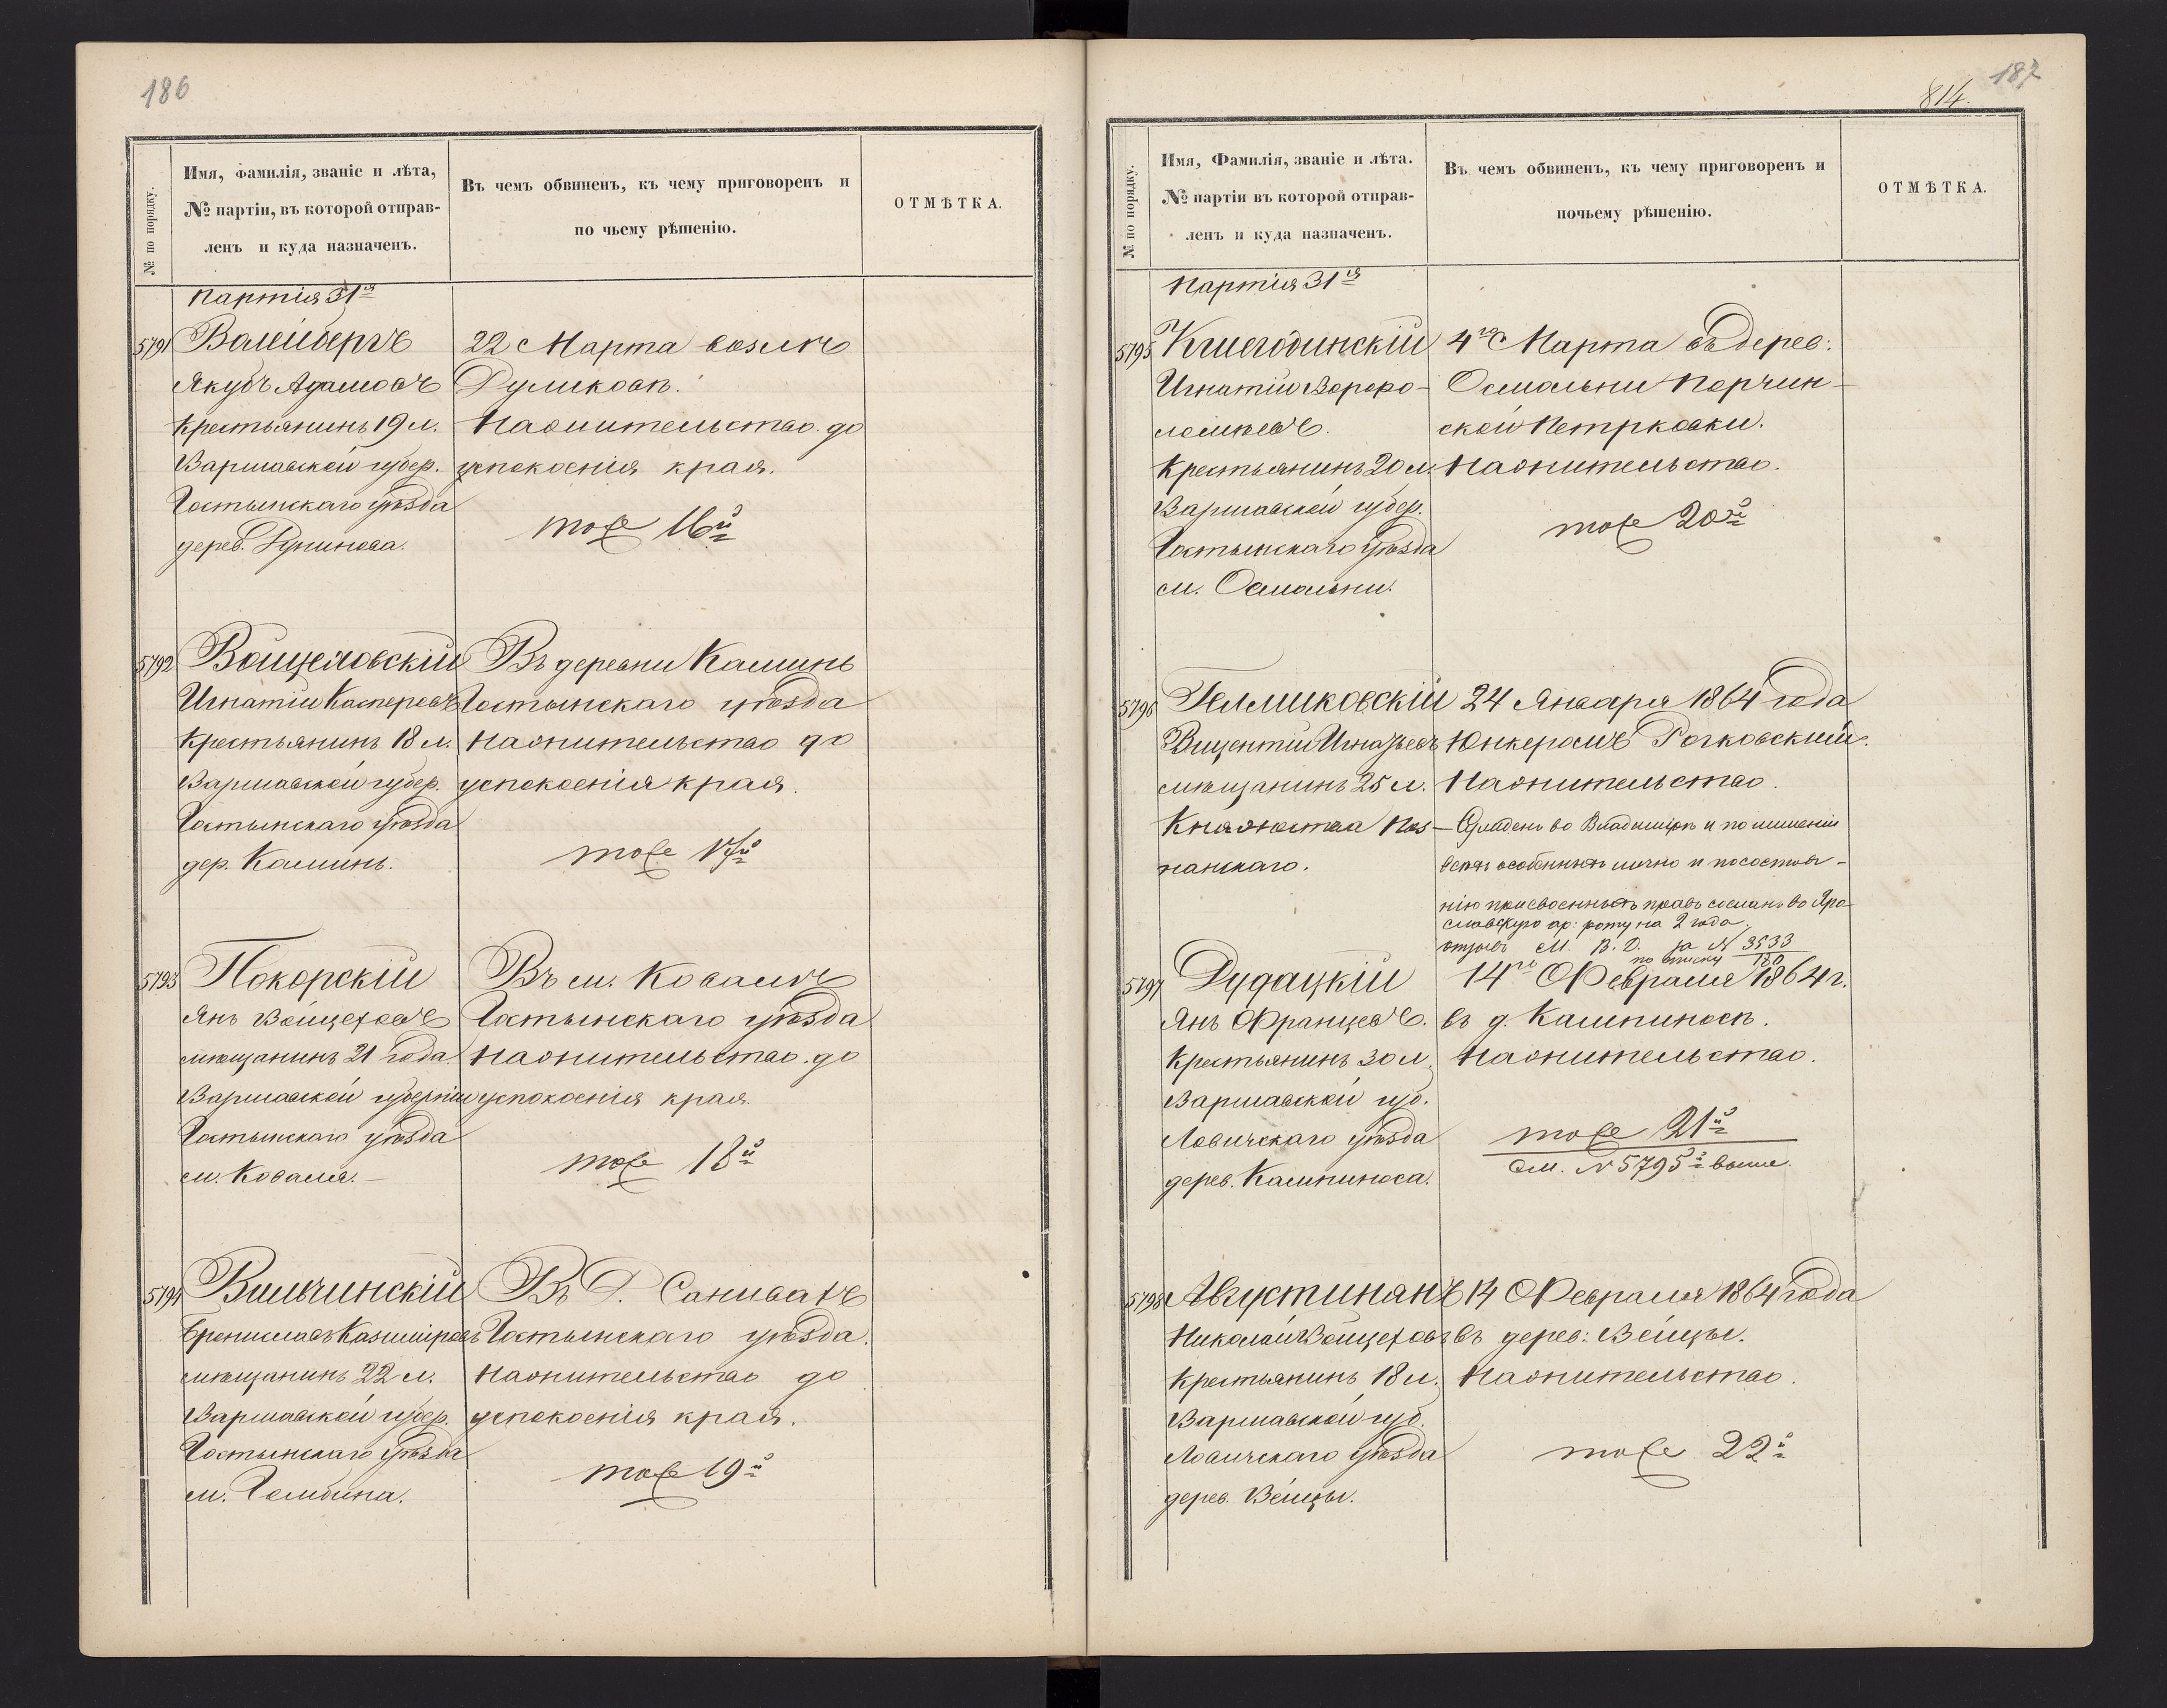 186
№ по порядку.
Имя, Фамилія, званіе и лѣта,
№ партіи, въ которой отправ-
ленъ и куда назначенъ.
Въ чемъ обвиненъ, къ чему приговоренъ и
по чьему рѣшенію.
ОТМѢТКА.
Партія 31я
5791
Якубъ Адамовъ
Крестьянинъ 19 л.
Варшавской губер.
Гостынскаго уѣзда
дерев.
22 Марта возлѣ
На жительство до
успокоенія края.
тоже 16й
5792
Войцеховскій
Игнатій Касперовъ
Крестьянинъ 18 л.
Варшавской губер.
Гостынскаго уѣзда
дер. Каминь.
Въ деревни Каминь
Гостынскаго уѣзда
На жительство до
успокоенія края.
тоже 17й
5793
Покорскій
Янъ Войцеховъ
мѣщанинъ 21 года
Варшавской губерніи
Гостынскаго уѣзда
м. Коваля.
Въ м. Ковалѣ
Гостынскаго уѣзда
На жительство до
успокоенія края.
тоже 18й
5794
Вильчинскій
Брониславъ Казиміровъ
мѣщанинъ 22 л.
Варшавской губер.
Гостынскаго уѣзда
м. Гомбина.
Въ Д.
Гостынскаго уѣзда.
На жительство до
успокоенія края.
тоже 19й
187
814.
№ по порядку.
Имя, Фамилія, званіе и лѣта.
№ партіи въ которой отправ-
ленъ и куда назначенъ.
Въ чемъ обвиненъ, къ чему приговоренъ и
почьему рѣшенію.
ОТМѢТКА.
Партія 31я
5795
Игнатій
Крестьянинъ 20 л.
Варшавской губер.
Гостынскаго уѣзда
м. Осмольни.
4го Марта въ дерев:
Осмольни
На жительство.
тоже 20й
5796
Гелмиковскій
Вицентій Игнатьевъ
мѣщанинъ 25 л.
Княжества Поз-
нанскаго.
24 Января 1864 года
Юнкеромъ Рочковскимъ.
На жительство.
во Владимірѣ и по лишеніи
всѣхъ особенныхъ лично и по состоя-
нію присвоенныхъ правъ сосланъ во Яро-
славскую ар: роту на 2 года
отзывъ М. В. Д. за № 3533
по списку 180
5797
Дудацкій
Янъ Францевъ.
Крестьянинъ 30 л.
Варшавской губ.
Ловичскаго уѣзда
дерев. Кампиноса.
14го Февраля 1864 г.
въ д. Кампиносѣ.
На жительство.
тоже 21й
См. № 5795й выше.
5798
Августинянъ
Николай Войцеховъ
Крестьянинъ 18 л.
Варшавской губ.
Ловичскаго уѣзда
дерев. Вейцы.
14 Февраля 1864 года
въ дерев: Вейцы.
На жительство.
тоже 22й